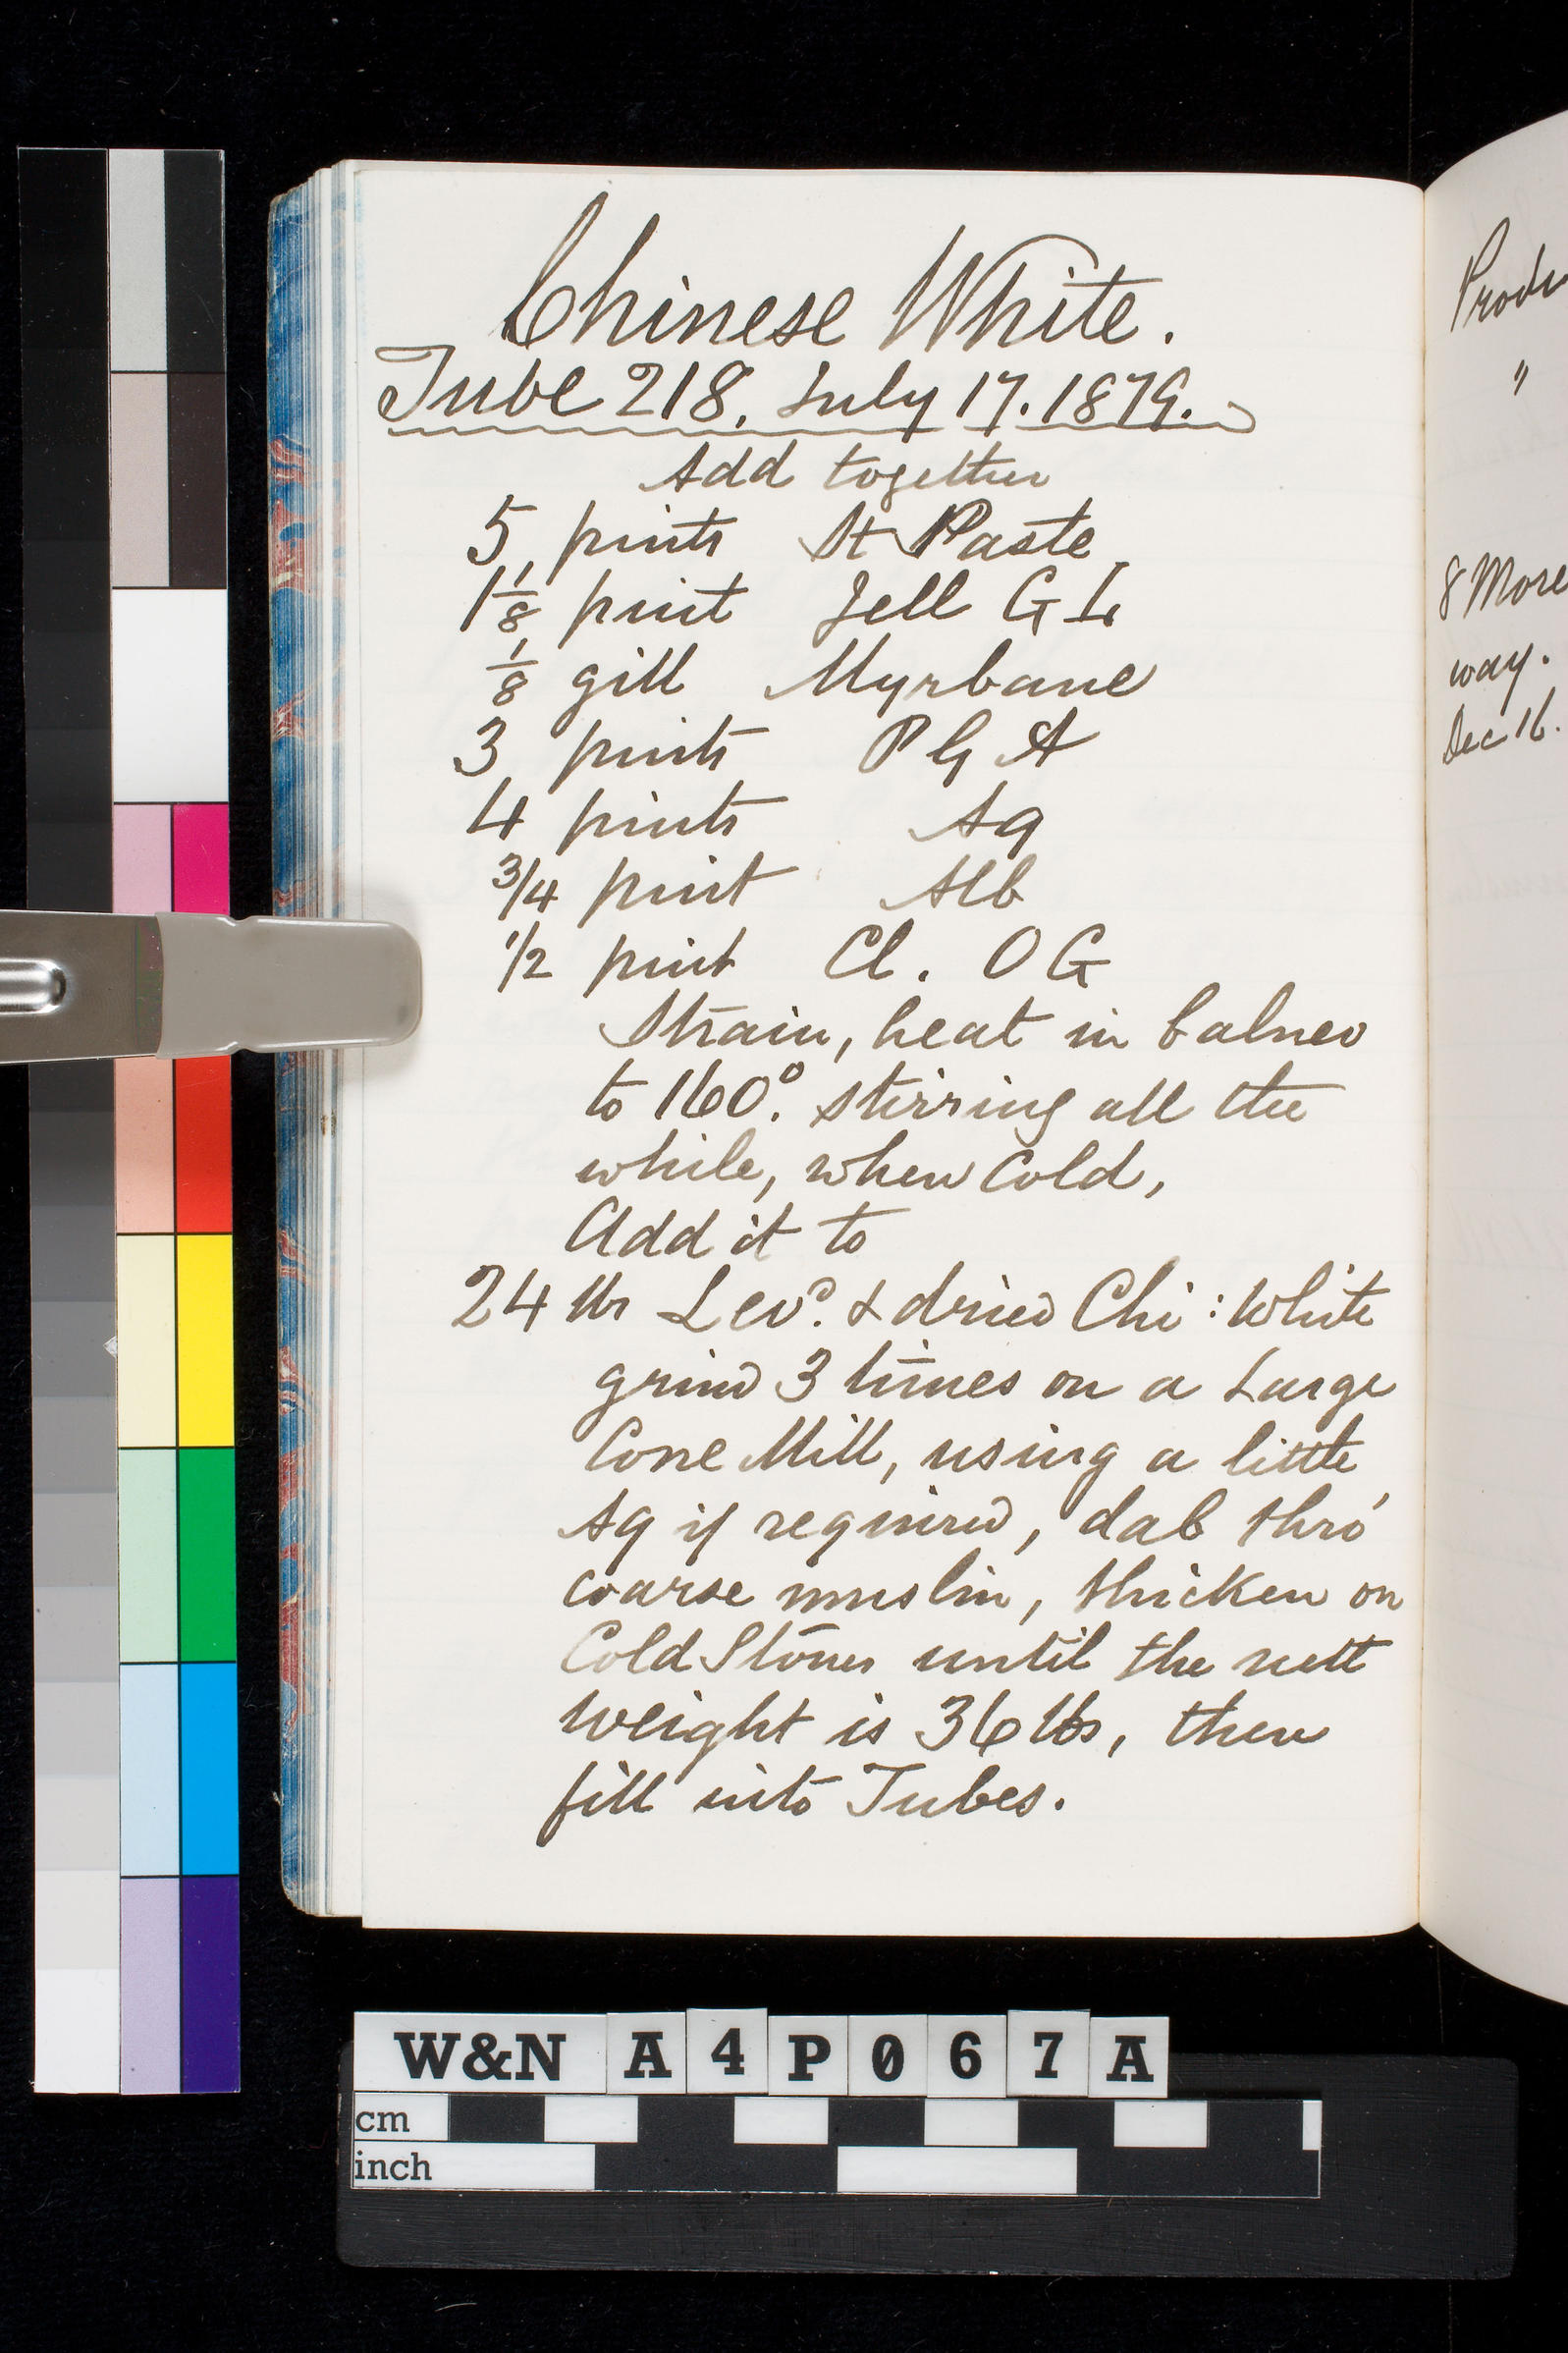 Chinese White.
Tube 218. July 17. 1879.
Add together
5 pints St Paste
1 1/8 pint Jell G L
1/8 gill Myrbane
3 pints P G A
4 pints Aq
3/4 pint Alb
1/2 pint Cl. O G
Strain, heat in balneo
to 160°. stirring all the
while, when Cold,
Add it to
24 lbs Levd. & dried Chi: White
grind 3 times on a Large
Cone Mill, using a little
Aq if required, dab thro'
coarse muslin, thicken on
Cold Stones until the nett
weight is 36 lbs, then
fill into Tubes.
Produ
"
8 More
way.
Dec 16.
W&N A4P067A
cm
inch